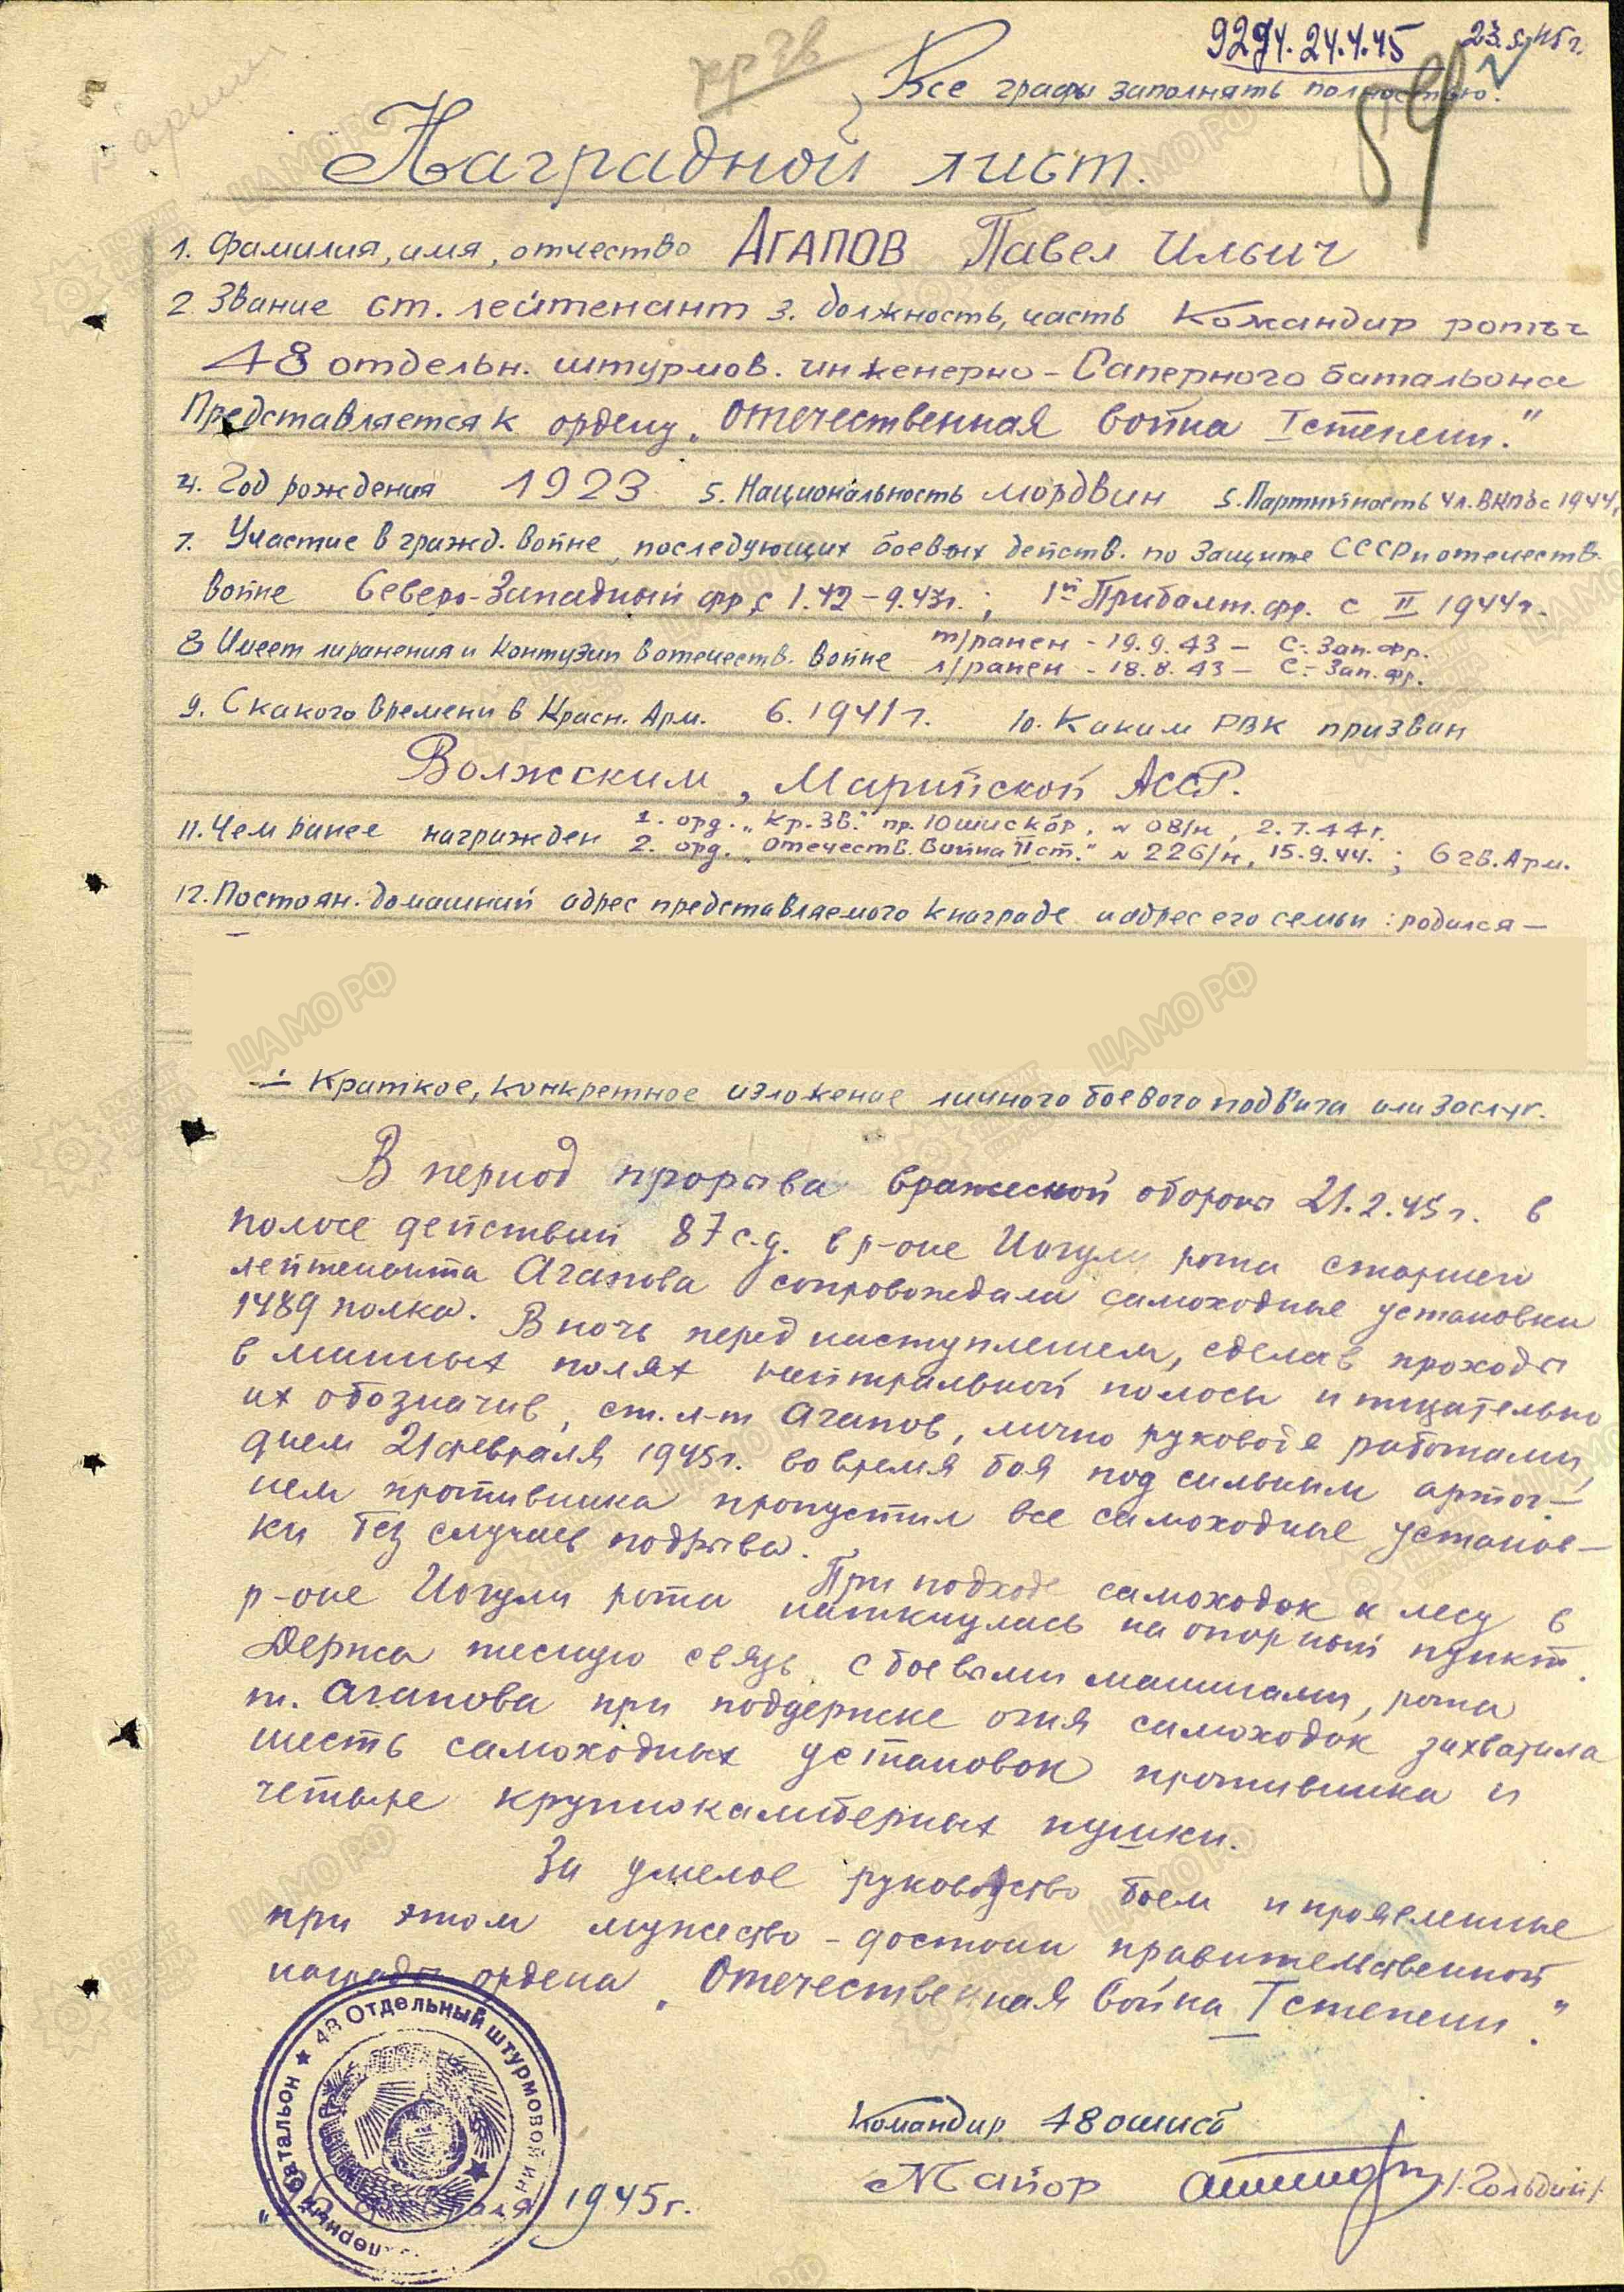 9294. 24.4.45 23.5.45г.
кр зв
Все графы заполнять полностью.
59
Наградной лист.
1. Фамилия, имя, отчество АГАПОВ Павел Ильич
2 Звание ст. лейтенант 3. должность, часть Командир роты
48 отдельн. штурмов. инженерно-Саперного батальона
Представляется к ордену „Отечественная война I степени."
4. Год рождения 1923 5. Национальность мордвин 5. Партийность чл. ВКПб с 1944г.
7. Участие в гражд. войне, последующих боевых действ. по защите СССР и отечеств.
войне Северо-Западный фр. с 1.42-9.43г.; 1й Прибалт. фр. с II 1944г.
8 Имеет ли ранения и контузии в отечеств. войне т/ранен - 19.9.43 - С.-Зап. фр.
л/ранен - 18.8.43 - С.-Зап. фр.
9. С какого времени в Красн. Арм. 6.1941г. 10. Каким РВК призван
Волжским, Марийской АССР.
11. Чем ранее награжден 1. орд. „Кр. Зв." пр. 10 шискбр, № 08/н, 2.7.44г.
2. орд. „Отечеств. Война II ст." № 226/н, 15.9.44.; 6 гв. Арм.
12. Постоян. домашний адрес представляемого к награде и адрес его семьи: родился —
Краткое, конкретное изложение личного боевого подвига или заслуг.
В период прорыва вражеской обороны 21.2.45г. в
полосе действий 87 с.д. в р-оне Иогули рота старшего
лейтенанта Агапова сопровождала самоходные установки
1489 полка. В ночь перед наступлением, сделав проходы
в минных полях нейтральной полосы и тщательно
их обозначив, ст. л-т Агапов, лично руководя работами,
днем 21 февраля 1945г. во время боя под сильным артог-
нем противника пропустил все самоходные установ-
ки без случаев подрыва.
При подходе самоходок к лесу в
р-оне Иогули рота наткнулась на опорный пункт.
Держа тесную связь с боевыми машинами, рота
т. Агапова при поддержке огня самоходок захватила
шесть самоходных установок противника и
четыре крупнокалиберных пушки.
За умелое руководство боем и проявленные
при этом мужество - достоин правительственной
награды ордена „Отечественная война I степени."
48 Отдельный штурмовой ин батальон
1945г.
Командир 48 ошисб
Майор /Гольдин/
ЦАМО РФ